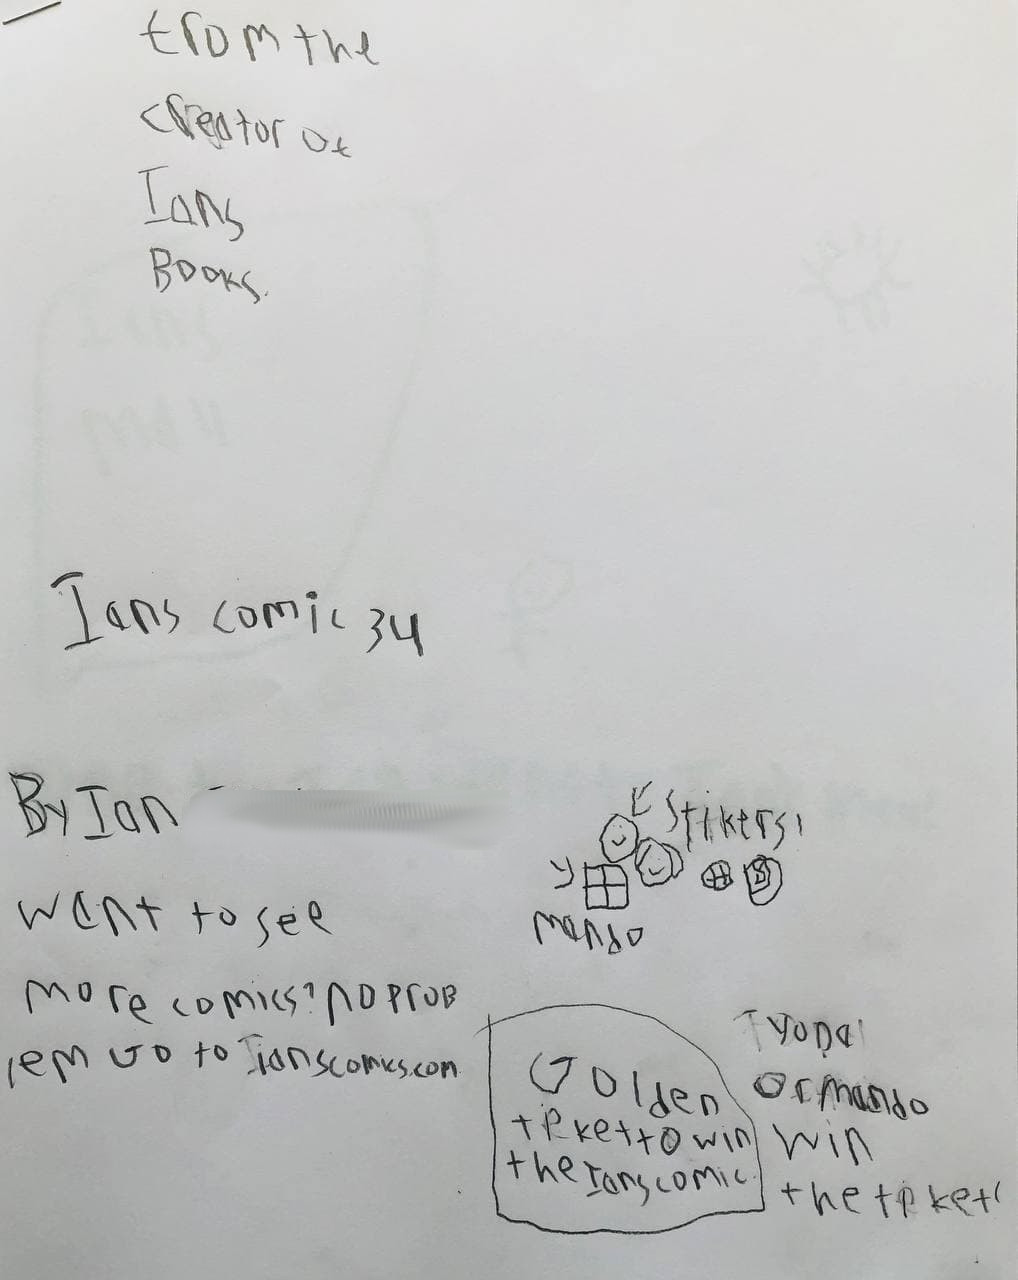 from the
creator of
Ians
Books.
Ians comic 34
By Ian
want to see
more comics? no prob
lem go to Ianscomics.com
Stikers!
mando
Golden
tiket to win
the Ians comic.
yoda
or mando
win
the tiket!